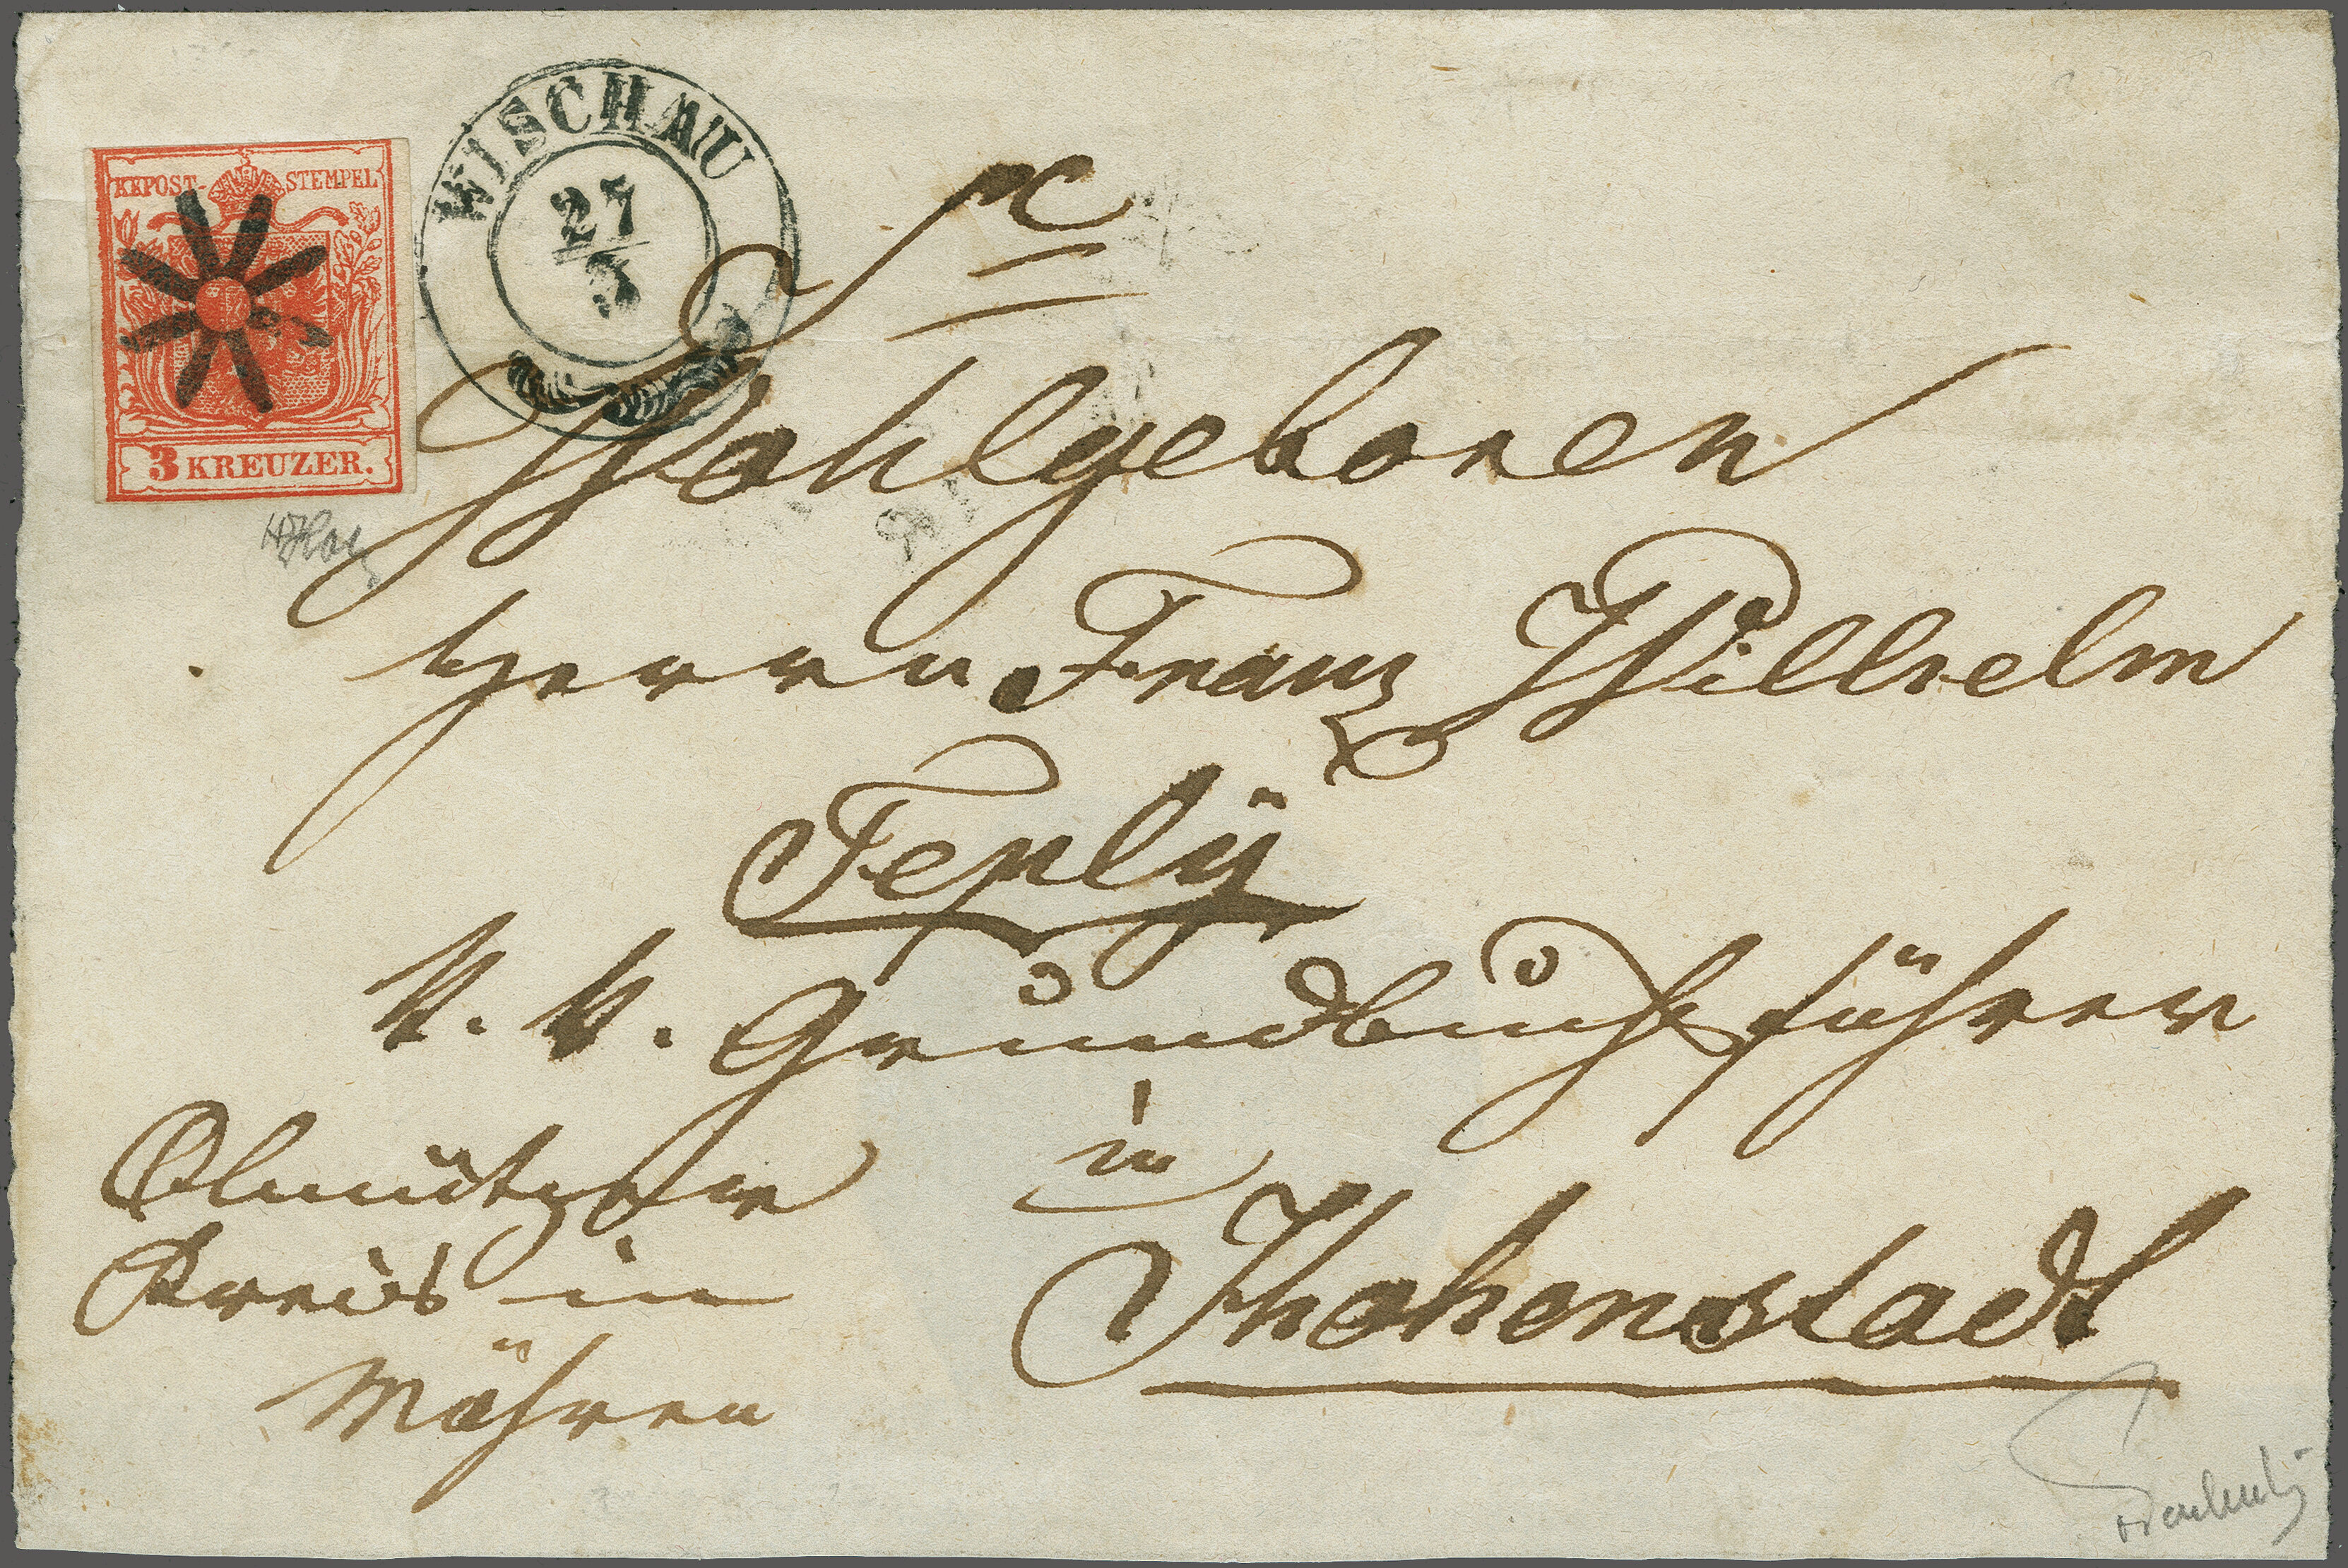 KKPOST-STEMPEL
3 KREUZER.
WISCHAU
27
3
Sr
Wohlgeboren
Herrn Franz Wilhelm
Teplÿ
k. k. Grundbuchsführer
in
Hohenstadt
Olmützer
Kreis in
Mähren